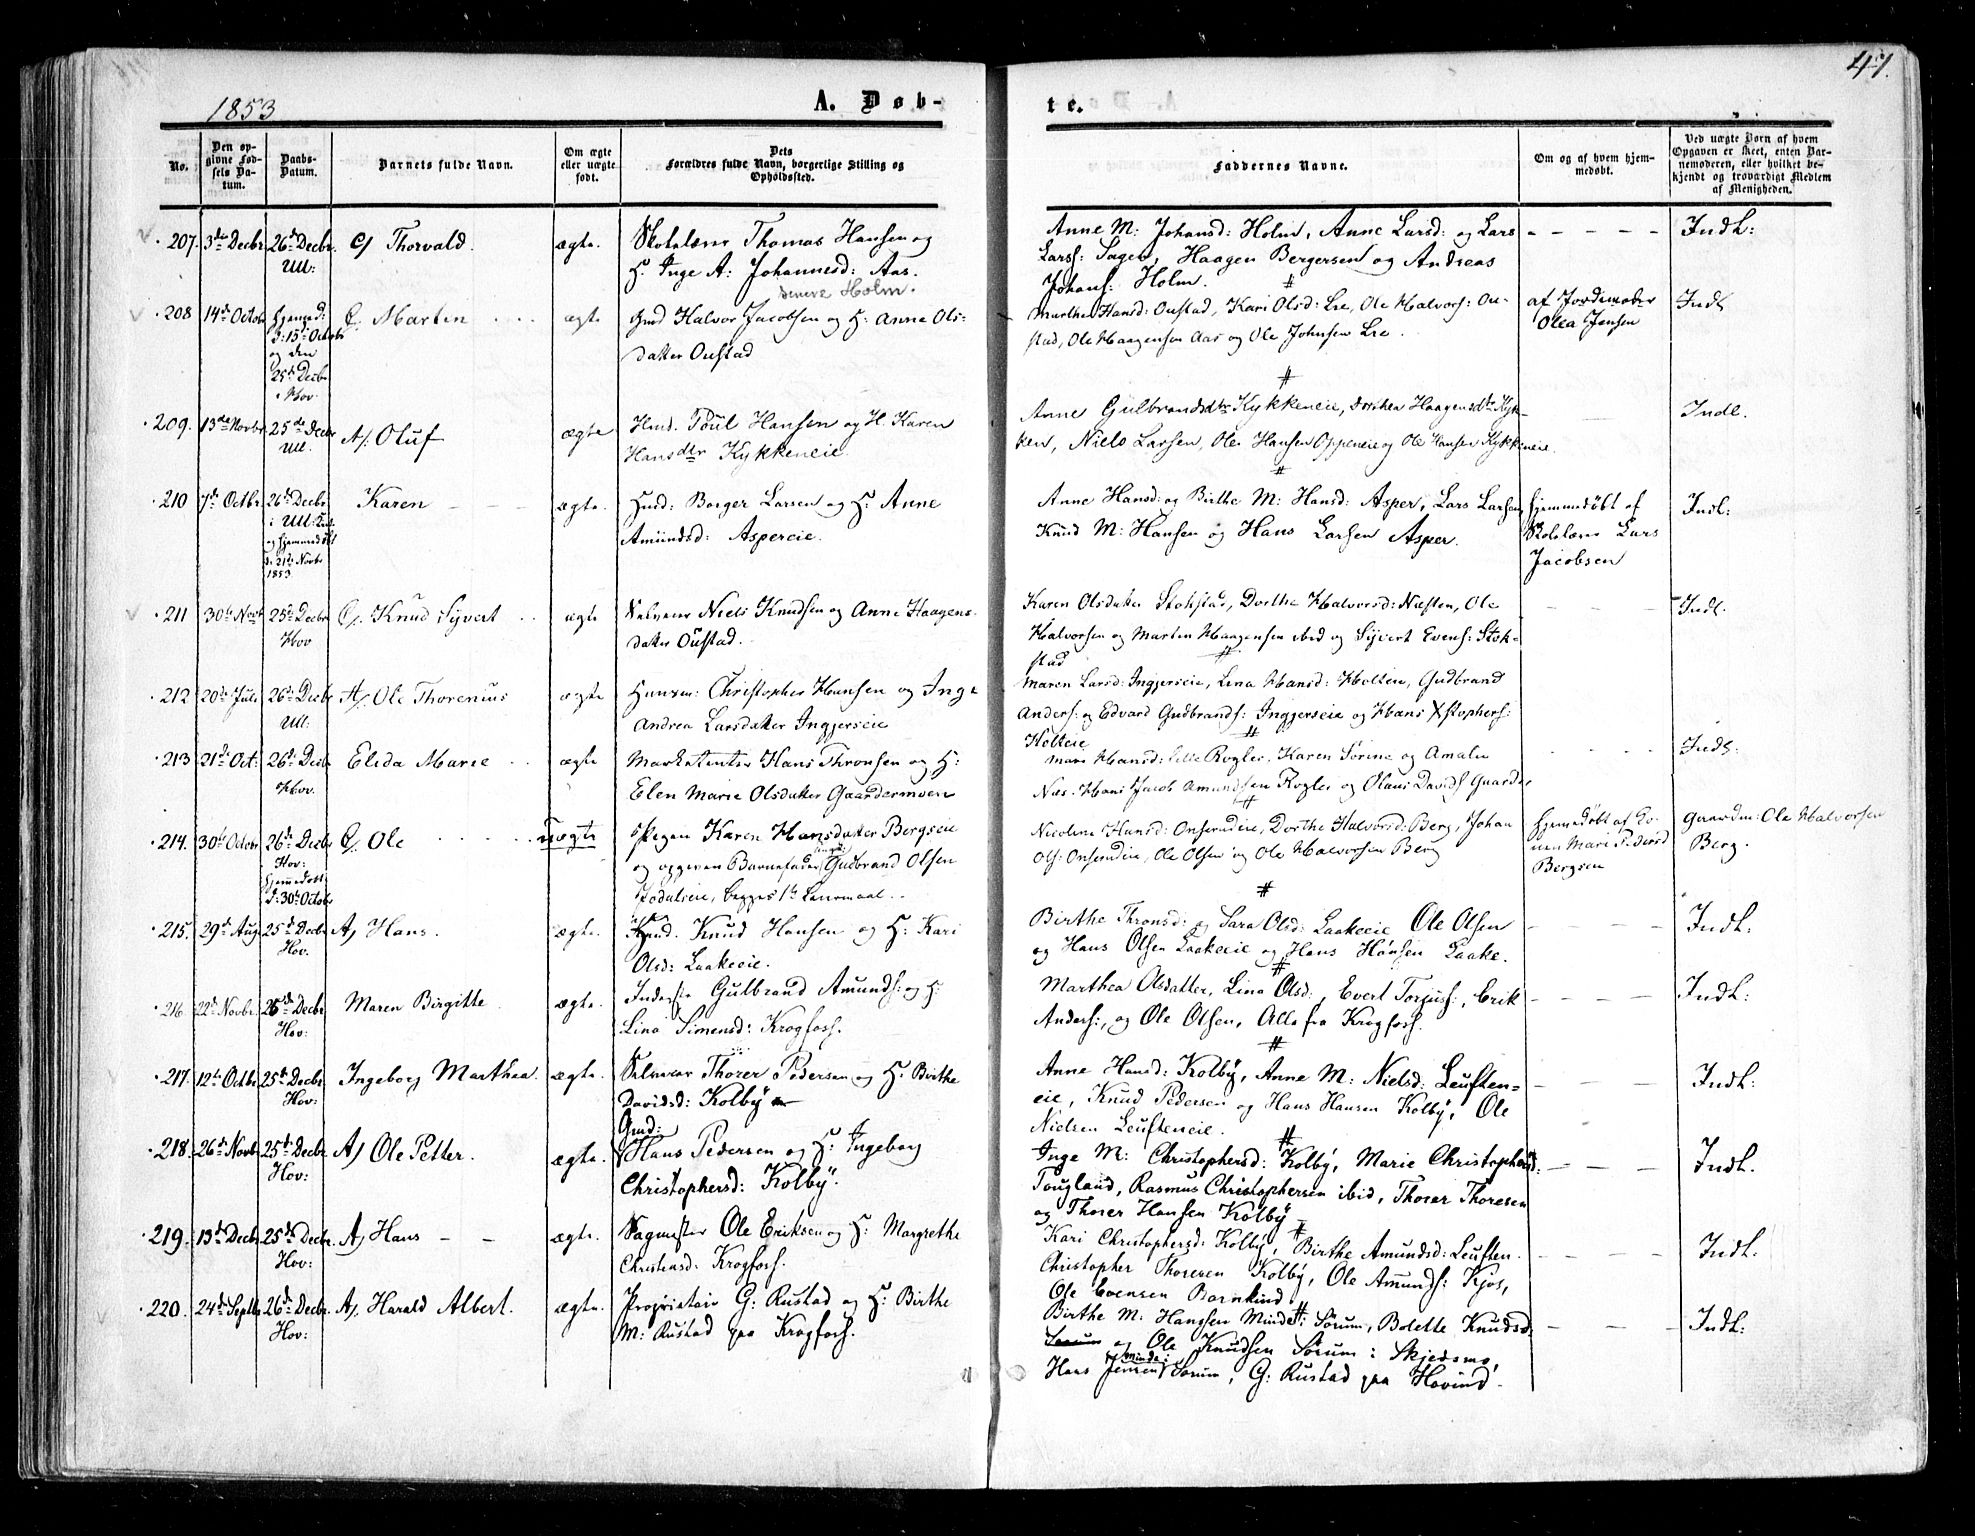 1853
A. Døb-
te.
47.
No.
Den op-
givne Fød-
sels Da-
tum.
Daabs-
Datum.
Barnets fulde Navn.
Om ægte
eller uægte
født.
Dets
Forældres fulde Navn, borgerlige Stilling og
Opholdssted.
Faddernes Navne.
Om og af hvem hjem-
medøbt.
Ved uægte Born af hvem
Opgaven er skeet, enten Bar-
nemoderen, eller hvilket be-
kjendt og troværdigt Medlem
af Menigheden.
207. 3de Decbr. 26de Decbr. Thorvald. ægte. Skolelærer Thomas Hansen og
Ull:
H. Inge A: Johannesd: Aas.
Holm.
Anne M: Johansd: Holm, Anne Larsd: og Lars
Larss: Sagen, Haagen Bergersen og Andreas
Johans: Holm.
Indl:
208 14de Octob Hjemmed: Martin ægte Gmd Halvor Jacobsen og H: Anne Ols-
d: 15de Octobr
datter Oustad
og den
25de Decbr
i Hov.
Marthea Hansd: Oustad, Kari Olsd: Lie, Ole Halvors: Ou-
stad, Ole Haagensen Aas og Ole Johnsen Lie.
af Jordemoder
Olea Jensen
Indl
209. 13de Novbr. 25de Decbr A/. Oluf ægte Hmd. Poul Hansen og H. Karen
Ull.
Hansdtr Kykkeneie.
Anne Gulbrandsdtr Kykkeneie, Dorthea Haagensdtr Kyk-
ken, Niels Larsen, Ole Hansen Oppeneie og Ole Hansen Kykkeneie.
Indl.
210 7de Octbr. 26de Decbr Karen ægte. Hmd: Borger Larsen og H: Anne
i Ull:
Amundsd: Aspereie.
og hjemmedøbt
d: 21de Novbr
1853
Anne Hansd: og Birthe M: Hansd: Asper, Lars Larsen
Knud M: Hansen og Hans Larsen Asper.
hjemmedøbt af
Skolelærer Lars
Jacobsen
Indl:
211 30te Novb 25de Decbr Knud Syvert ægte Selveier Niels Knudsen og Anne Haagens-
Hov
datter Oustad.
Karen Olsdatter Stokstad, Dorthe Halvorsd: Næsten, Ole
Halvorsen og Martin Haagensen ibid og Syvert Evens: Stok-
stad
Indl.
212 20de Juli 26de Decbr A/. Ole Thorenius ægte Huusm: Christopher Hansen og Inge
Ull:
Andrea Larsdatter Ingjerseie
Maren Larsd: Ingjerseie, Lina Hansd: Holten, Gudbrand
Anders: og Edvard Gudbrands: Ingjerseie og Hans Xstophers:
Holteie
213 21de Oct: 26de Decbr Elida Marie ægte Marketenter Hans Thronsen og H:
Hov.
Elen Marie Olsdatter Gaardermoen
Mari Hansd: lille Rogler, Karen Sørine og Amalie
Næs. Hans Jacob Amundsen Rogler og Olaus Davids Gaarder
Indl:
214. 30te Octbr 26de Decbr Ole Uægte Pigen Karen Hansdatter Bergseie
Hov:
og opgiven Barnefader Gudbrand Olsen
hjemmedøbt
Jødalseie, begges 1ste Leiermaal.
d: 30te Octobr
Nicoline Hansd: Onserudeie, Dorthe Halvorsd: Berg, Johan
Ols: Onserudeie, Ole Olsen og Ole Halvorsen Berg
hjemmedøbt af
Mari Pedersd
Bergseie
Gaardm: Ole Halvorsen
Berg.
215. 29de Aug. 25de Decbr A/ Hans. ægte. Hmd. Knud Hansen og H: Kari
Hov.
Olsd: Laakeeie.
Birthe Thronsd: og Sara Olsd: Laakeeie Ole Olsen
og Hans Olsen Laakeeie og Hans Hansen Laake.
Indl:
216. 22de Novbr. 25de Decbr Maren Birgitte ægte. Inderste Gulbrand Amunds: og H:
Hov:
Lina Simensd: Krogfoss.
Marthea Olsdatter, Lina Olsd:, Evert Torjus:, Erik
Anders:, og Ole Olsen, Alle fra Krogfoss.
Indl:
217. 12te Octbr. 25de Decbr. Ingeborg Marthea. ægte. Selveier Thorer Pedersen og H. Birthe
Hov:
Davidsd: Kolby
Anne Hansd: Kolby, Anne M: Nielsd: Leuften-
eie, Knud Pedersen og Hans Hansen Kolby, Ole
Nielsen Leufteneie.
Indl:
218. 26de Novbr 25de Decbr. A/ Ole Petter. ægte. Gmd: Hans Pedersen og H: Ingeborg
Hov:
Christophersd: Kolby.
Inge M: Christophersd: Kolby, Marie Christophersd:
Tougland, Rasmus Christophersen ibid, Thorer Thoresen
og Thorer Hansen Kolby
Indl.
219. 13de Decb 25de Decbr. A/ Hans ægte. Sagmester Ole Eriksen og H: Margrethe
Hov:
Christensd: Krogfoss.
Kari Christophersd: Kolby, Birthe Amundsd: Leuften.
Christopher Thoresen Kolby, Ole Amunds: Kjos,
Ole Evensen Barnkind.
Indl:
220. 24de Septbr 26de Decbr. A/. Harald Albert. ægte. Proprietair G: Rustad og H: Birthe
Hov:
M: Rustad paa Krogfoss.
Birthe M: Hanssen Minde: Sørum, Bolette Knudsd:
Sørum og Ole Knudsen Sørum i Skjedsmo,
Hans Jensen Minde: Sørum, G: Rustad paa Hovind.
Indl: